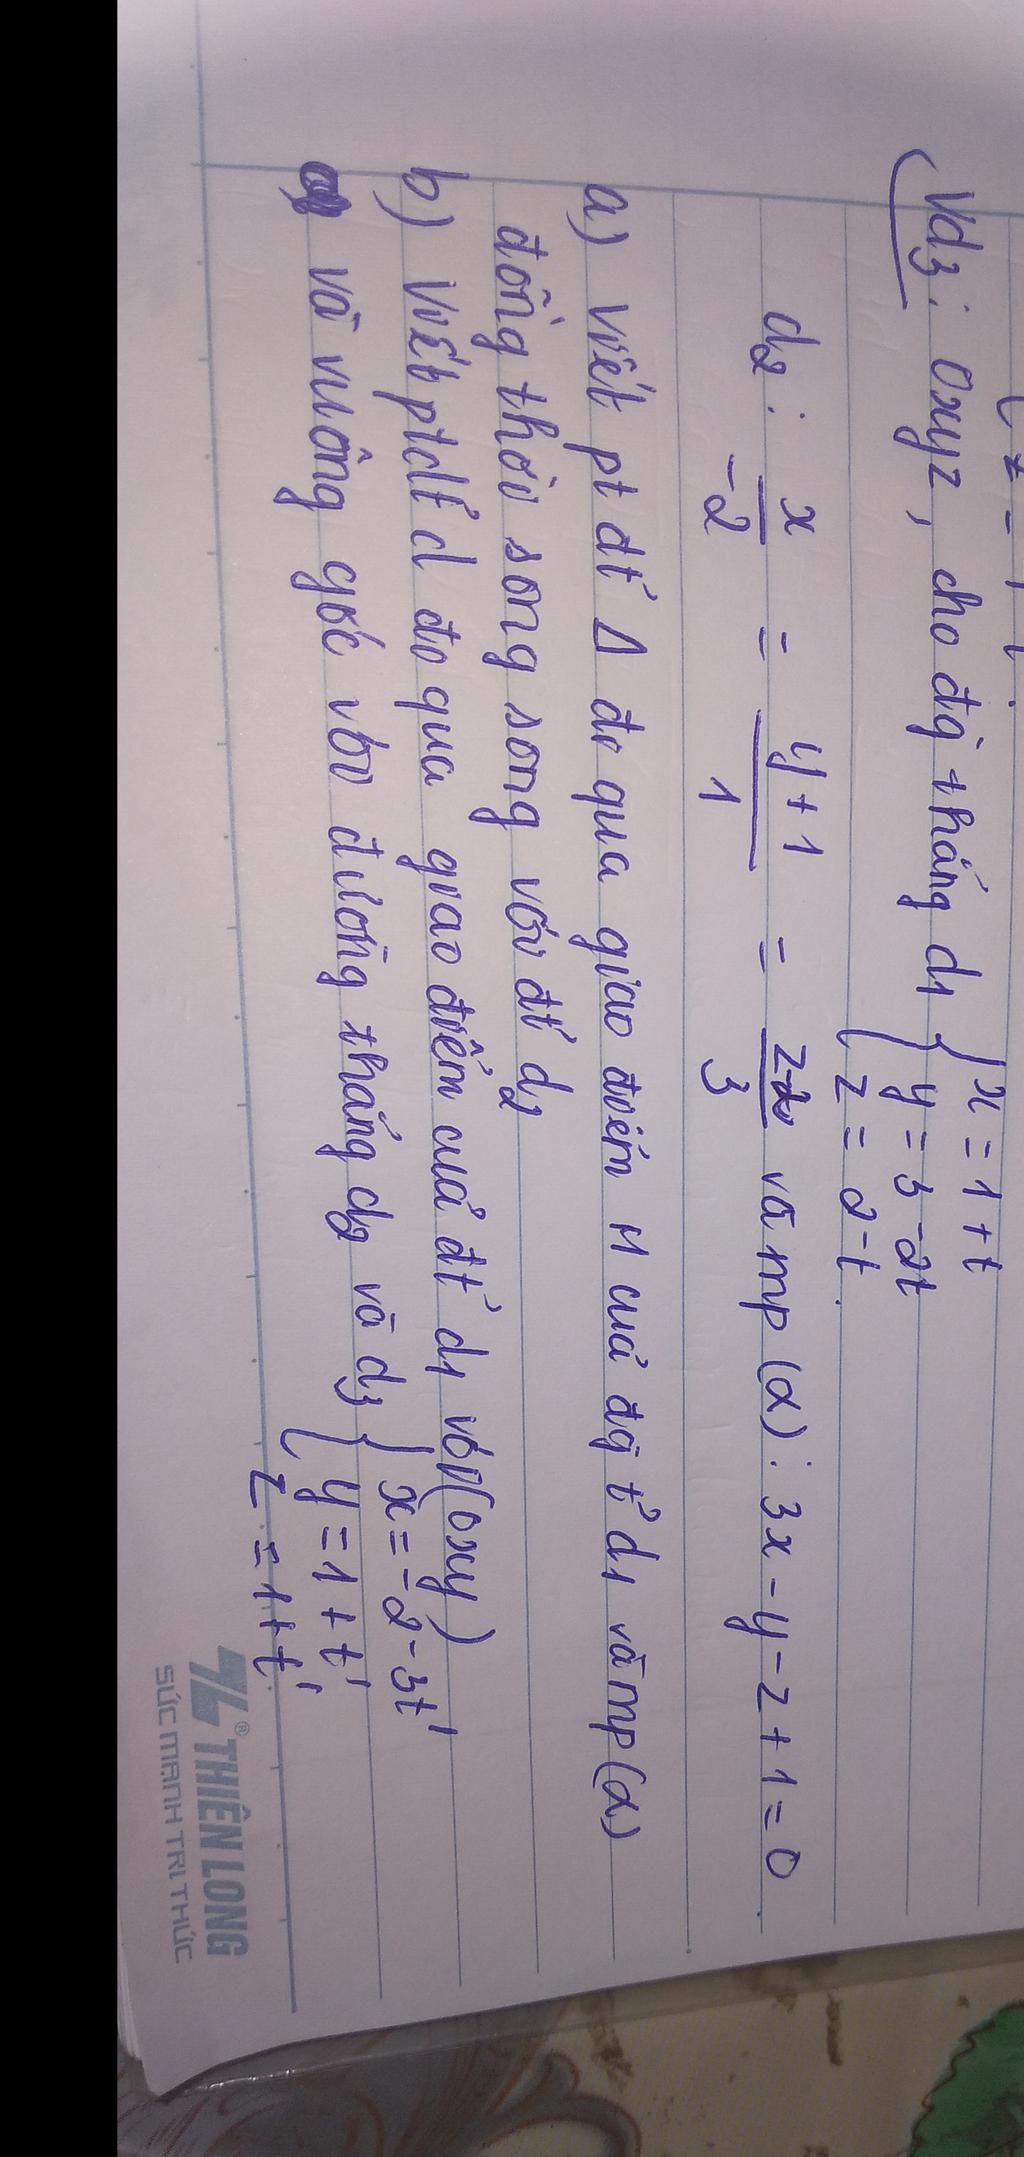 Vd3: Oxyz, cho đg thẳng d1 { x = 1 + t
y = 3 - 2t
z = 2 - t.
d2: x/-2 = y+1/1 = z-2/3 và mp (α): 3x - y - z + 1 = 0
a) Viết pt đt Δ đi qua giao điểm M của đg t' d1 và mp (α)
đồng thời song song với đt d2
b) Viết ptđt d đi qua giao điểm của đt' d1 với (oxy)
và vuông góc với đường thẳng d2 và d3 { x = -2 - 3t'
y = 1 + t'
z = 1 + t'
® THIÊN LONG
SỨC MẠNH TRI THỨC